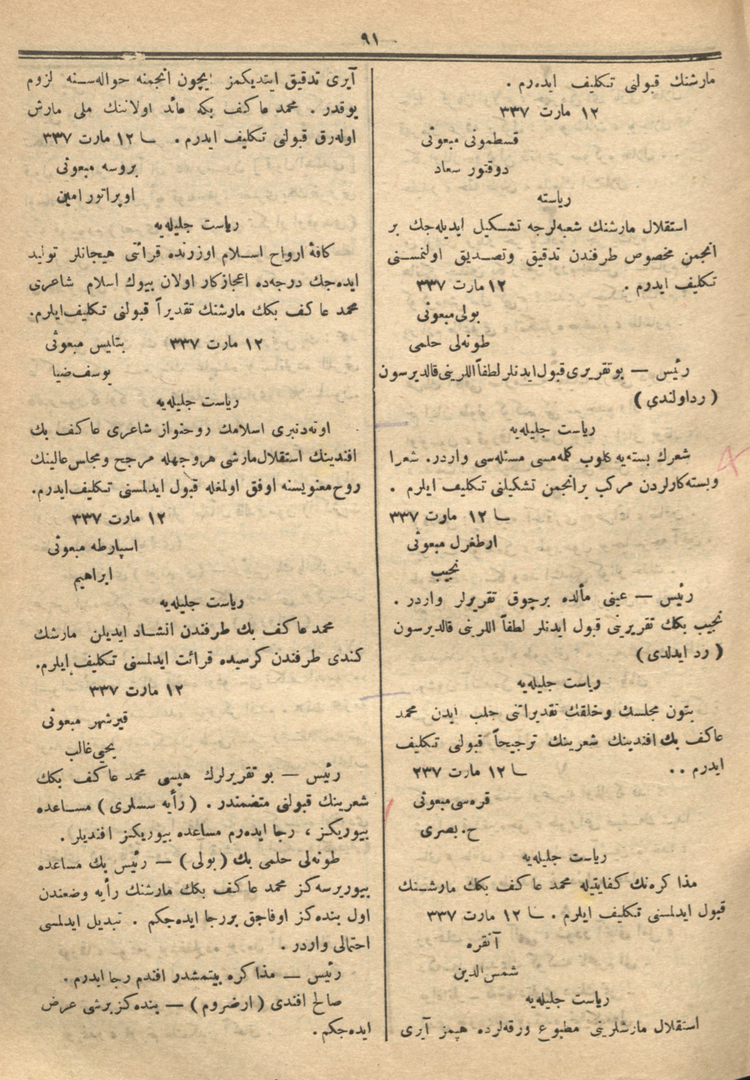 ٩١
مارشنك قبولنی تكلیف ایدەرم .
١٢ مارت ٣٣٧
قسطمونی مبعوثی
دوقتور سعاد
ریاسته
استقلال مارشنك شعبه‌لرجه تشكیل ایدیله‌جك بر
انجمن مخصوص طرفندن تدقیق وتصدیق اولنمسنی
تكلیف ایدرم . ١٢ مارت ٣٣٧
بولی مبعوثی
طونه‌لی حلمی
رئیس — بو تقریری قبول ایدنلر لطفاً اللرینی قالدیرسون
( رد اولندی )
ریاست جلیله‌یه
شعرك بسته‌یه كلوب كلمه‌مسی مسئله‌سی واردر. شعرا
وبسته‌كارلردن مركب بر انجمن تشكیلنی تكلیف ایلرم .
١٢ مارت ٣٣٧
ارطغرل مبعوثی
نجیب
رئیس — عینی مآلده برچوق تقریرلر واردر .
نجیب بكك تقریرینی قبول ایدنلر لطفاً اللرینی قالدیرسون
( رد ایدلدی )
ریاست جلیله‌یه
بتون مجلسك وخلقك تقدیراتنی جلب ایدن محمد
عاكف بك افندینك شعرینك ترجیحاً قبولنی تكلیف
ایدرم . . ١٢ مارت ٢٣٧
قره‌سی مبعوثی
ح. بصری
ریاست جلیله‌یه
مذاكره‌نك كفایتیله محمد عاكف بكك مارشنك
قبول ایدلمسنی تكلیف ایلرم . ١٢ مارت ٣٣٧
آنقره
شمس الدین
ریاست جلیله‌یه
استقلال مارشلرینی مطبوع ورقه‌لرده هپمز آیری
آیری تدقیق ایتدیكمز ایچون انجمنه حواله‌سنه لزوم
یوقدر . محمد عاكف بكه عائد اولاننك ملی مارش
اوله‌رق قبولنی تكلیف ایدرم . ١٢ مارت ٣٣٧
بروسه مبعوثی
اوپراتور امین
ریاست جلیله‌یه
كافهٔ ارواح اسلام اوزرنده قرائتی هیجانلر تولید
ایده‌جك درجه‌ده اعجازكار اولان بیوك اسلام شاعری
محمد عاكف بكك مارشنك تقدیراً قبولنی تكلیف ایلرم.
١٢ مارت ٣٣٧ بتلیس مبعوثی
یوسف ضیا
ریاست جلیله‌یه
اوته‌دنبری اسلامك روحنواز شاعری عاكف بك
افندینك استقلال مارشی هر وجهله مرجح ومجلس عالینك
روح معنویسنه اوفق اولمغله قبول ایدلمسنی تكلیف ایدرم.
١٢ مارت ٣٣٧
اسپارطه مبعوثی
ابراهیم
ریاست جلیله‌یه
محمد عاكف بك طرفندن انشاد ایدیلن مارشك
كندی طرفندن كرسیده قرائت ایدلمسنی تكلیف ایلرم.
١٢ مارت ٣٣٧
قیرشهر مبعوثی
یحیی غالب
رئیس — بو تقریرلرك هپسی محمد عاكف بكك
شعرینك قبولنی متضمندر . ( رأیه سسلری ) مساعده
بیوریكز ، رجا ایده‌رم مساعده بیوریكز افندیلر .
طونه‌لی حلمی بك ( بولی ) — رئیس بك مساعده
بیوریرسه‌كز محمد عاكف بكك مارشنك رأیه وضعندن
اول بنده‌كز اوفاجق بر رجا ایده‌جكم . تبدیل ایدلمسی
احتمالی واردر .
رئیس — مذاكره بیتمشدر افندم رجا ایدرم .
صالح افندی ( ارضروم ) — بنده‌كز برشی عرض
ایده‌جكم .